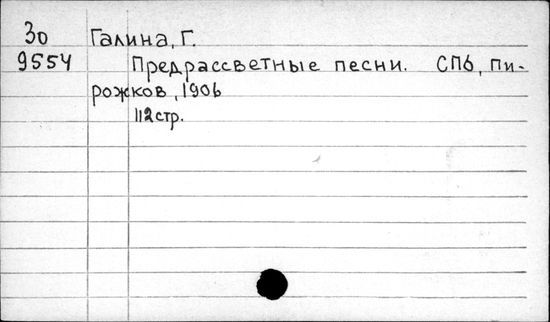 30 Галина, Г.
9554 Предрассветные песни. СПб, Пи-
рожков, 1906
112 стр.